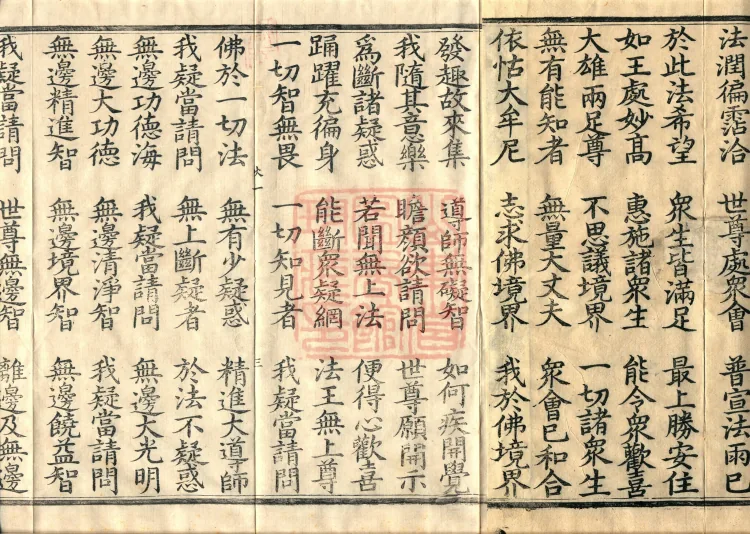 法潤徧霑洽　世尊處衆會　普宣法雨已
於此法希望　衆生皆滿足　最上勝安住
如王處妙髙　惠施諸衆生　能令衆歡喜
大雄兩足尊　不思議境界　一切諸衆生
無有能知者　無量大丈夫　衆會已和合
依怙大牟尼　志求佛境界　我於佛境界
發趣故來集　導師無礙智　如何疾開覺
我隨其意樂　瞻顔欲請問　世尊願開示
爲斷諸疑惑　若聞無上法　便得心歡喜
踊躍充徧身　能斷衆疑網　法王無上尊
一切智無畏　一切知見者　我疑當請問
火一　三
佛於一切法　無有少疑惑　精進大導師
我疑當請問　無上斷疑者　於法不疑惑
無邊功德海　我疑當請問　無邊大光明
無邊大功德　無邊清淨智　我疑當請問
無邊精進智　無邊境界智　無邊饒益智
我疑當請問　世尊無邊智　離邊及無邊